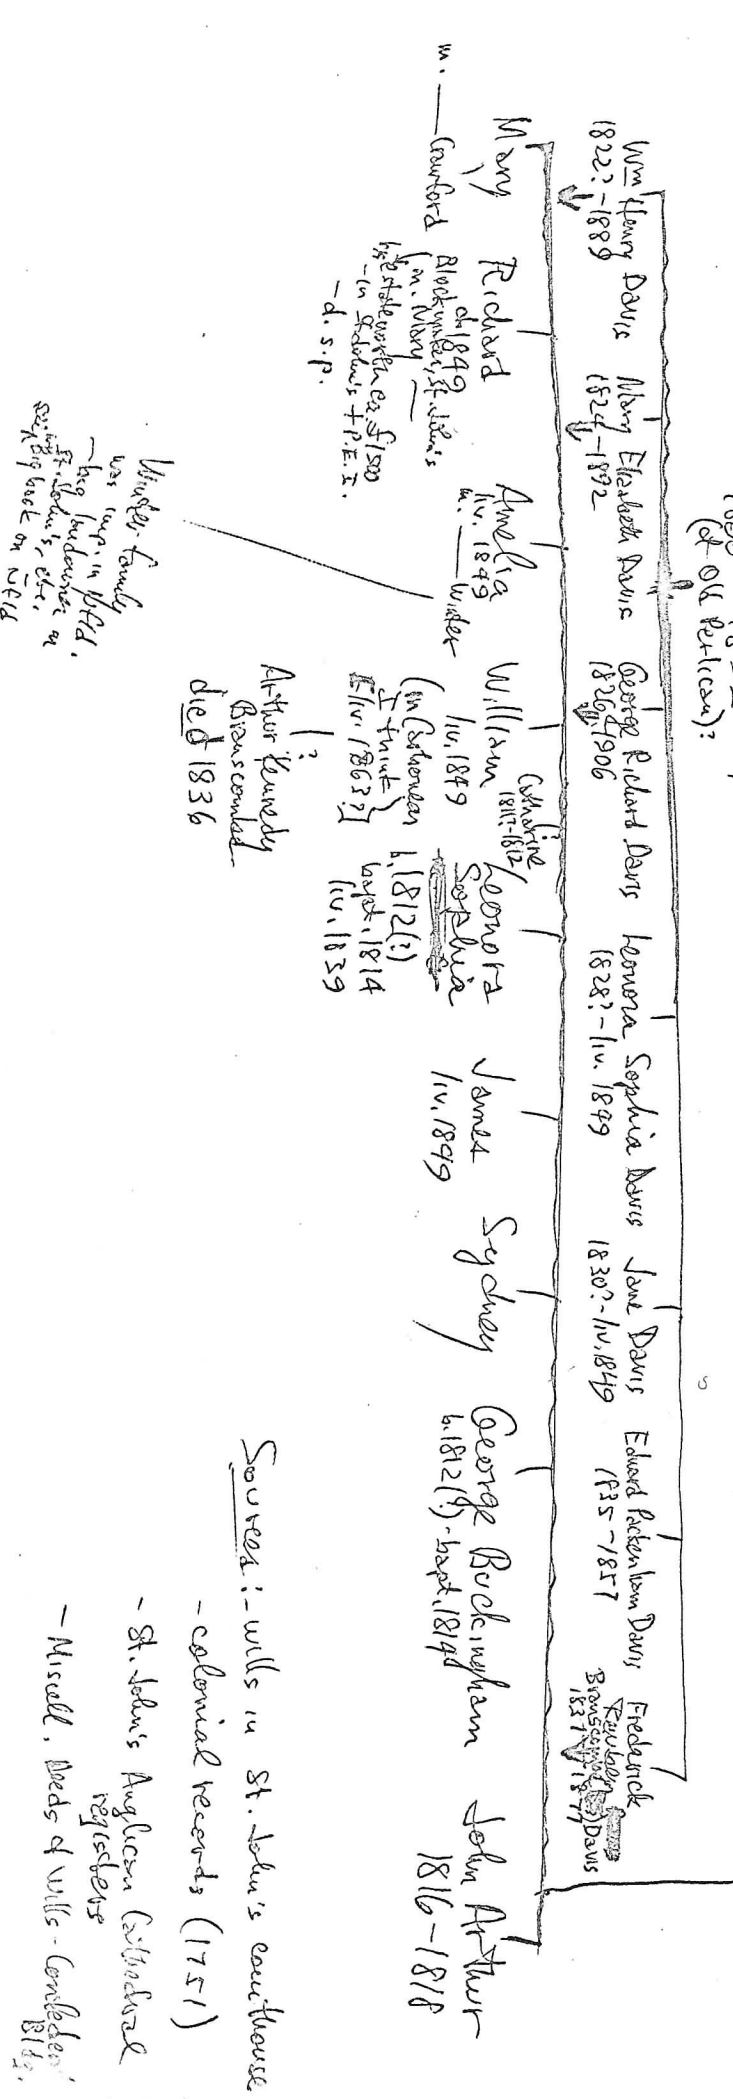 (of Old Perlican)?
Wm Henry Davis
1822?-1889
Mary Elizabeth Davis
1824-1892
George Richard Davis
1826-1906
Leonora Sophia Davis
1828?-liv. 1849
Jane Davis
1830?-liv. 1849
Edward Packenham Davis
1835-1857
Frederick
Reuben
Branscombe Davis
1837-1877
Mary
m. — Crawford
Richard
d. 1849
Blockmaker, St. John's
(m. Mary —
estate worth ca. £1500
- in St. John's + P.E.I.
- d. s.p.
Amelia
liv. 1849
m. — Winter
Winter family
was imp. in Nfld.
- big landowners in
St. John's, etc.
big book on Nfld
William
liv. 1849
(in Carbonear
I think)
[liv. 1863?]
?
Arthur Kennedy
Branscombe
died 1836
?
Catharine
1811?-1812
Leonora
Sophia
b. 1812(?)
bapt. 1814
liv. 1839
James
liv. 1849
Sydney
George Buckingham
b. 1812(?)-bapt. 1814
John Arthur
1816-1818
Sources:- wills in St. John's courthouse
- colonial records (1751)
- St. John's Anglican Cathedral
registers
- Miscell. Deeds & Wills - Confeder.
Bldg.